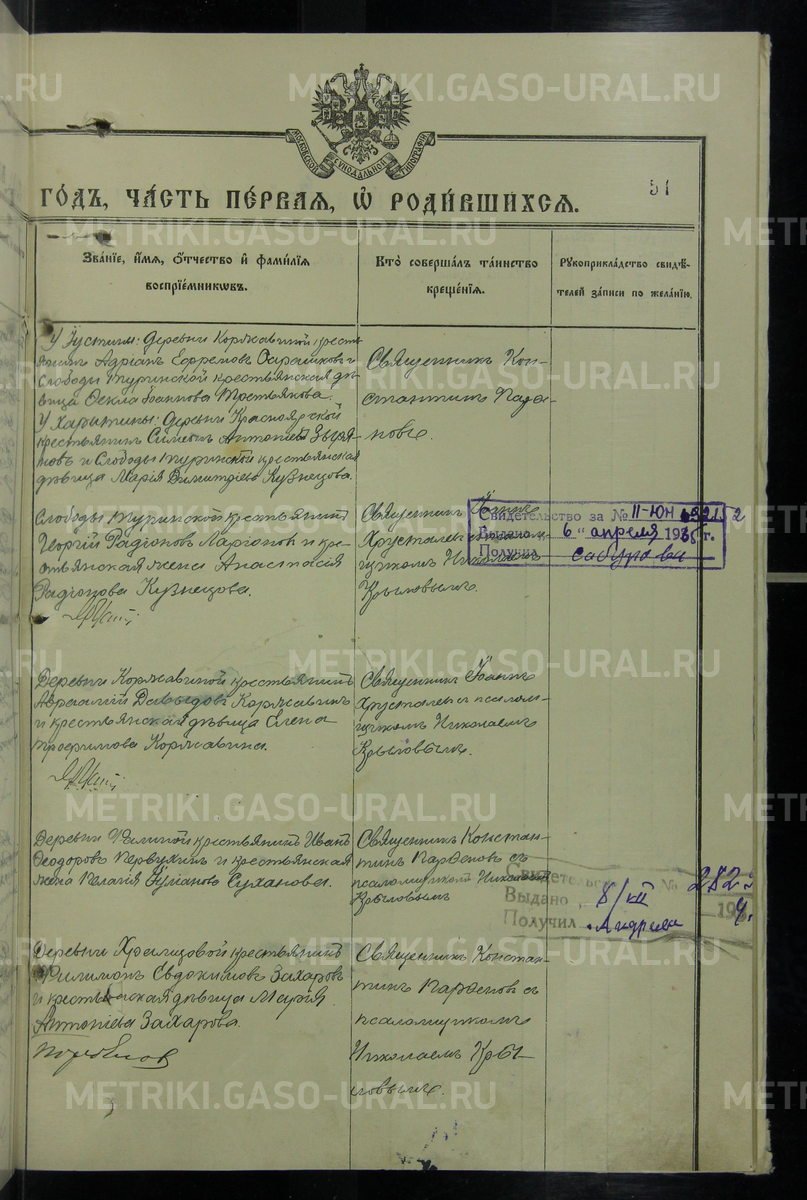 МОСКОВСКОЙ СУНОДАЛЬНОЙ ТИПОГРАФІИ
51
ГО́ДЪ, ЧА́СТЬ ПЕ́РВАЯ, Ѡ РОДИ́ВШИХСЯ.
Зва́нїе, и́мя, о́тчество и҆ фами́лїя воспрїе́мникѡвъ.
Кто̀ соверша́лъ та́инство креще́нїя.
Рукоприкла́дство свидѣ́телей за́писи по жела́нїю.
У Іустины: Деревни Коржавиной кресть-
янинъ Адріанъ Ефремовъ и
Слободы Туринской крестьянская дѣ-
вица Ѳекла Іоаннова Третьякова.
У Харитины: Деревни Красноярской
крестьянинъ Симеонъ Антоніевъ Зыря-
новъ и Слободы Туринской крестьянская
дѣвица Марія Димитріева Кузнецова.
Священникъ Кон-
стантинъ Парде-
новъ.
Слободы Туринской крестьянинъ
Георгій Радіоновъ и кре-
стьянская жена Анастасія
Радіонова Кузнецова.
Священникъ Іоаннъ
Хрусталевъ съ псалом-
щикомъ Николаемъ
Крыловымъ.
Свидетельство за № II-ЮН
Выдано "6" апреля 193 г.
Получил
Деревни Коржавиной крестьянинъ
Давыдовъ Коржавинъ
и крестьянская дѣвица Елена
Трофимова Коржавина.
Священникъ Іоаннъ
Хрусталевъ съ псалом-
щикомъ Николаемъ
Крыловымъ.
Деревни крестьянинъ Иванъ
Ѳеодоровъ Первухинъ и крестьянская
жена Пелагія Суханова.
Священникъ Констан-
тинъ Парденовъ съ
псаломщикомъ Николаемъ
Крыловымъ
Свидетельство № 282
Выдано 8/XII 19
Получил
Деревни Храмцовой крестьянинъ
Филимонъ Евдокимовъ Захаровъ
и крестьянская дѣвица Марія
Антоніева Захарова.
Священникъ Констан-
тинъ Парденовъ съ
псаломщикомъ
Николаемъ Кры-
ловымъ.
METRIKI.GASO-URAL.RU